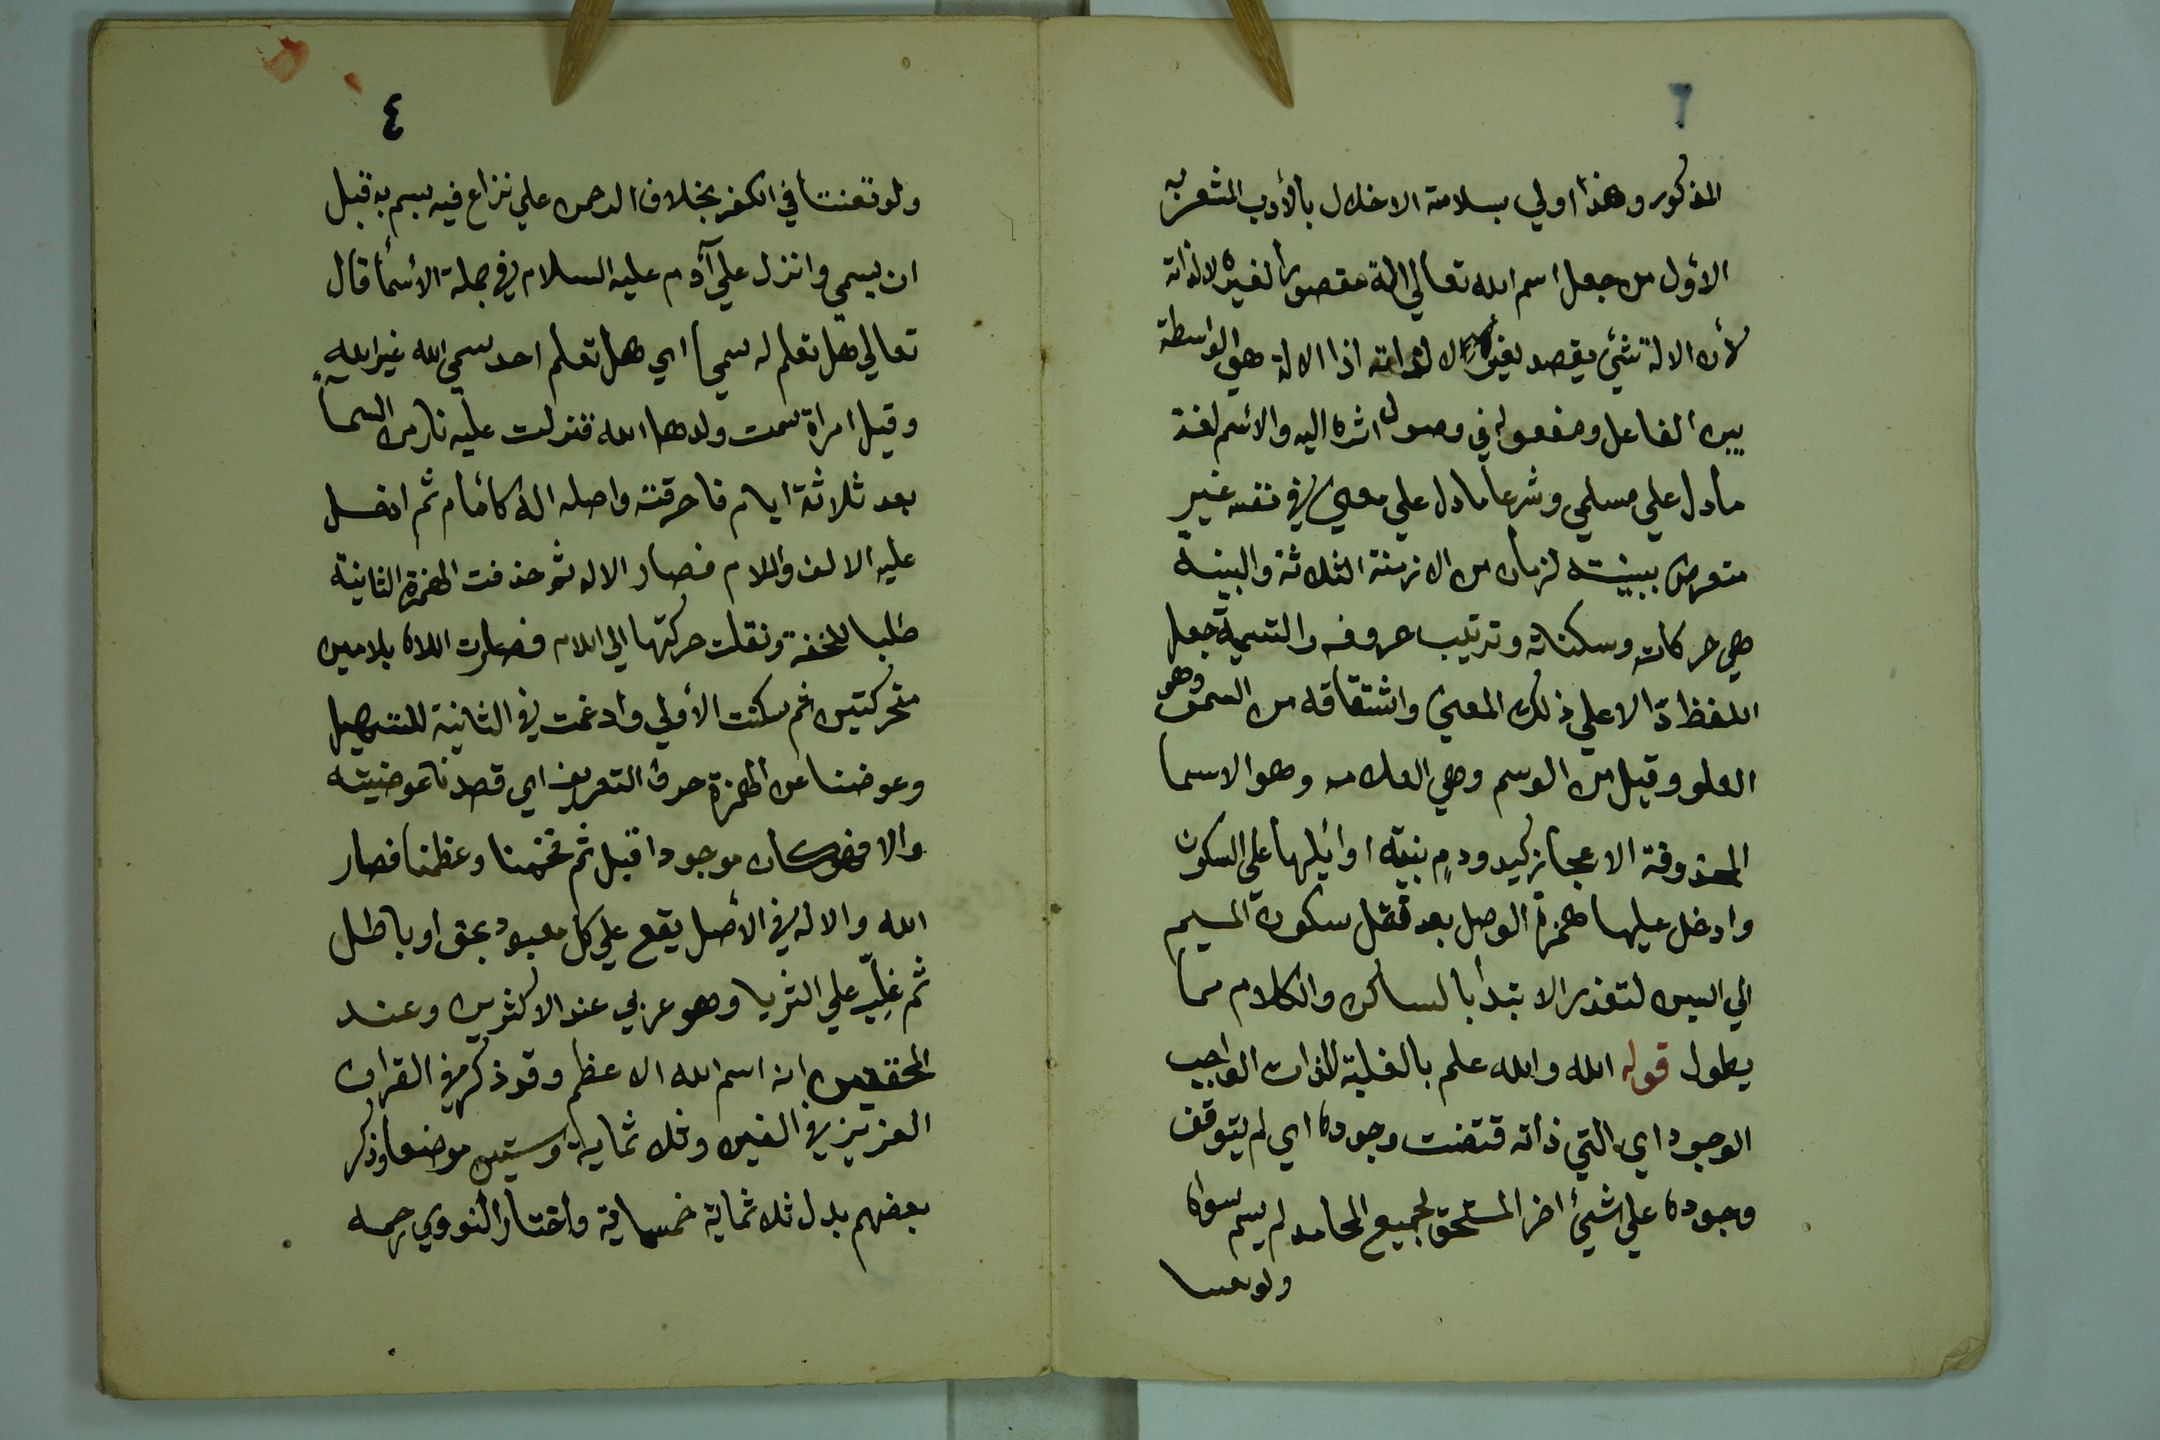 المذكور وهذا اولي بسلامة الاخلال بالأدب المشعر به
الأول من جعل اسم الله تعالي الة مقصورا لغيره لا لذاته
لأن الالة شئ يقصد لغيره لا لذاته اذا الالة هي الواسطة
بين الفاعل ومفعوله في وصول اثره اليه والأسم لغة
مادل علي مسلمي وشرعا مادل علي معني في نفسه غير
متعرض ببنيته لزمان من الازمنة الثلاثة والبينة
هي حركاته وسكناته وترتيب حروفه والتسمية جعل
اللفظ دالا علي ذلك المعني واشتقاقه من السمو وهو
العلو وقيل من الوسم وهي العلامه وهو الاسما
المحذوفة الاعجاز كيد ودم بنية اوائلها علي السكون
وادخل عليها همزة الوصل بعد نقل سكون الميم
الي السين لتعذر الابتدا بالساكن والكلام مما
يطول قوله الله والله علم بالغلبة للذات الواجب
الوجود اي التي ذاته قتضت وجوده اي لم يتوقف
وجوده علي شيئ اخر المستحق لجميع المحامد لم يسم سواه
ولو تعنتا
٤
ولو تعنتا في الكفر بخلاف الرحمن علي نزاع فيه يسم به قبل
ان يسمي وانزل علي آدم عليه السلام في جملة الأسما قال
تعالي هل تعلم له سميا اي هل تعلم احد سمي الله غير الله
وقيل امراة سمت ولدها الله فنزلت عليه نار من السماء
بعد ثلاثة ايام فاحرقته واصله اله كامام ثم ادخل
عليه الالف واللام فصار الاله ثم حذفت الهمزة الثانية
طلبا للخفة ونقلت حركتها الي اللام فصارت اللاه بلامين
متحركتين ثم سكنت الأولي وادغمت في الثانية للتسهيل
وعوضنا عن الهمزة حرف التعريف اي قصدنا عوضيته
والا فهو كان موجودا قبل ثم فخمنا وعظمنا فصار
الله والاله في الأصل يقع علي كل معبود بحق او باطل
ثم غلب علي الثريا وهو عربي عند الاكثرين وعند
المحققين انه اسم الله الاعظم وقد ذكر في القران
العزيز في الفين وثلاثماية وستين موضعا وذكر
بعضهم بدل ثلاثماية خمسماية واختار النووي رحمه